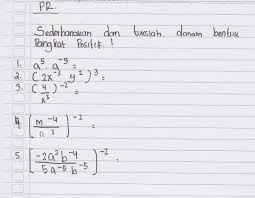 PR.
Sederhanakan dan tuislah dalam bentuk
Pangkat Positif !
1. a⁵. a⁻⁹ =
2. (2x⁻³ y²)³ =
3. (4/x³)⁻² =
4. [m⁻⁴/n³]⁻² =
5. [-2a³b⁻⁴/5a⁻⁵b⁻⁵]⁻² =